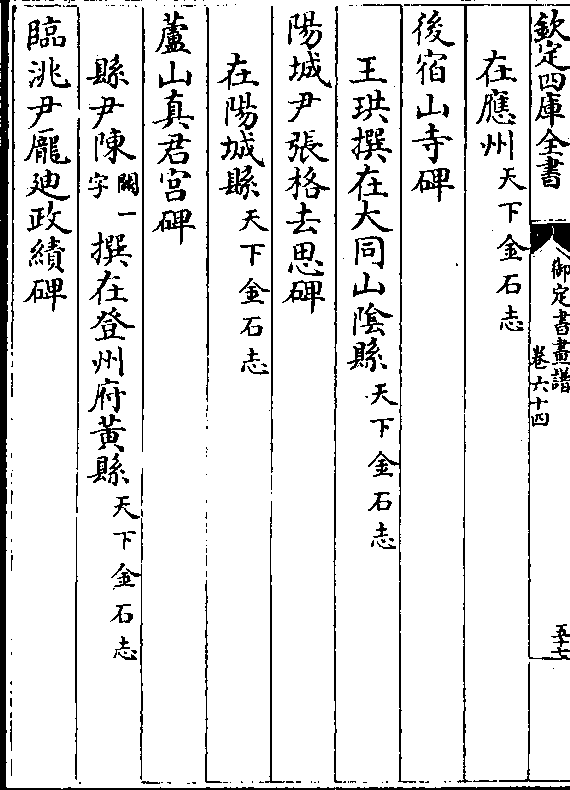 欽定四庫全書
御定書畫譜
卷六十四
五十七
在應州天下金石志
後宿山寺碑
王珙撰在大同山陰縣天下金石志
陽城尹張格去思碑
在陽城縣天下金石志
蘆山真君宮碑
縣尹陳闕一字撰在登州府黃縣天下金石志
臨洮尹龎廸政績碑